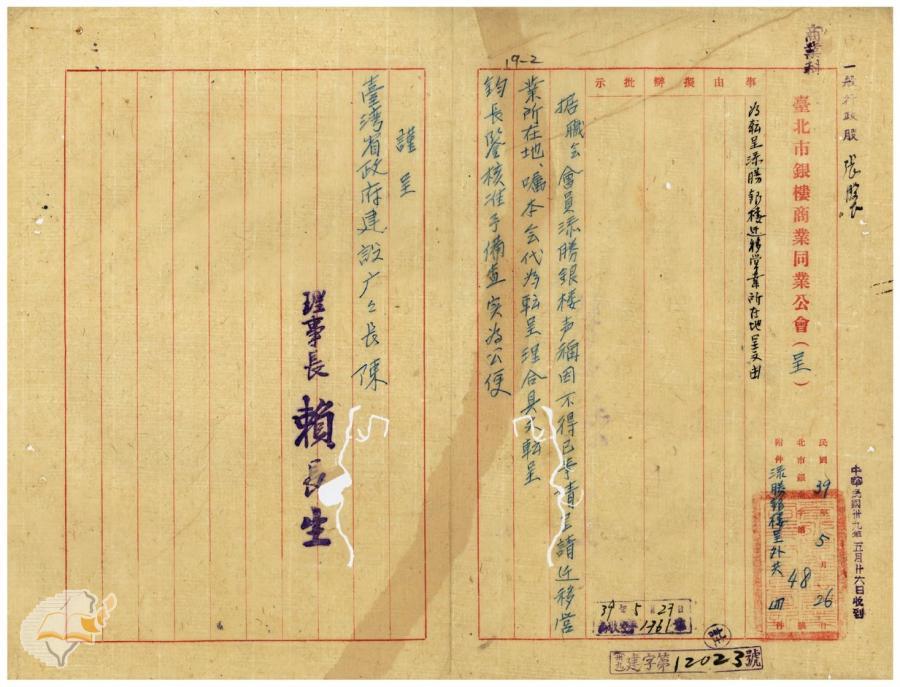 商業科
一般行政股 張
臺北市銀樓商業同業公會（呈）
民國39年5月26日
北市銀 字第48號
附件 添勝銀樓呈外共四件
中華民國卅九年五月廿六日收到
事由擬辦批示
為転呈添勝銀楼迁移営業所在地呈文由
据職会會員添勝銀楼声稱因不得已 請迁移営
業所在地、嘱本会代为転呈理合具文転呈
鈞長鑒核准予備查实為公便
19-2
39年5月27日
1361
卅九建字第12023號
謹呈
臺湾省政府建設广々長陳
理事長 賴長生